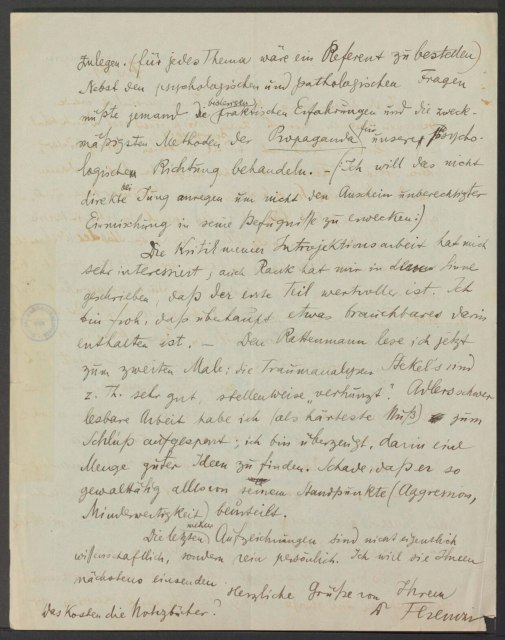 zulegen. (für jedes Thema wäre ein Referent zu bestellen)
Nebst den psychologischen und pathologischen Fragen
müßte jemand die bisherigen praktischen Erfahrungen und die zweck-
mäßigsten Methoden der Propaganda für unsere psycho-
logischen Richtung behandeln. – (Ich will das nicht
direkte bei Jung anregen um nicht den Anschein unberechtigter
Einmischung in seine Befugnisse zu erwecken.)
Die Kritik meiner Introjektionsarbeit hat mich
sehr interessiert, auch Rank hat mir in Sinne
geschrieben, daß der erste Teil wertvoller ist. Ich
bin froh, daß überhaupt etwas brauchbares darin
enthalten ist. – Den Rattenmann lese ich jetzt
zum zweiten Male; die Traumanalysen Stekel's sind
z. Th. sehr gut, stellenweise „verhunzt". Adlers schwer
lesbare Arbeit habe ich (als härteste Nuß) zum
Schluß aufgespart; ich bin überzeugt, darin eine
Menge guter Ideen zu finden. Schade, daß er so
gewalttätig alles von seinem Standpunkte (Aggression,
Minderwertigkeit) beurteilt.
Die letzten Aufzeichnungen sind nicht eigentlich
wissenschaftlich, sondern rein persönlich. Ich will sie Ihnen
nächstens einsenden
Herzliche Grüße von Ihrem
Ferenczi
Was kosten die Notizbücher?